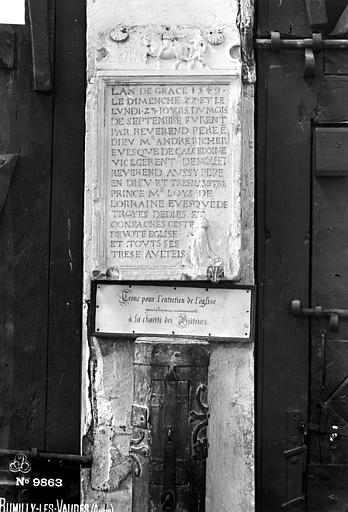 LAN DE GRACE 1549.
LE DIMENCHE 22 ET LE
LVNDI 23 IOVRS DV MOIS
DE SEPTENBRE FVRENT
PAR REVEREND PERE E
DIEV Mᵉ ANDRE RICHER
EVESQVE DE CALCEDOINE
VICEGERENT DE
REVEREND AVSSY PERE
EN DIEV ET TRES ILLVSTRE
PRINCE Mᵉ LOYS DE
LORRAINE EVESQVE DE
TROYES DEDIES ET
CONSACRES CESTE
DEVOTE EGLISE
ET TOVTS SES
TRESE AVLTELS
Tronc pour l'entretien de l'église
à la charité des Visiteurs.
Nº 9863
RUMILLY-LES-VAUDES (Aube)